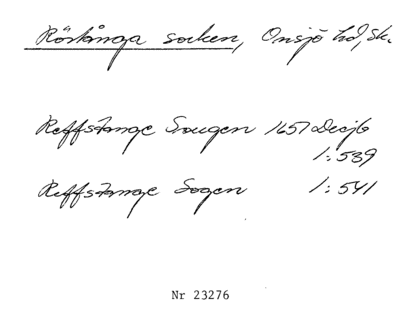 Röstånga socken, Onsjö hd, Sk.
Reffstange Sougen 1657 Decjb
1:539
Reffstange Sogen 1:541
Nr 23276